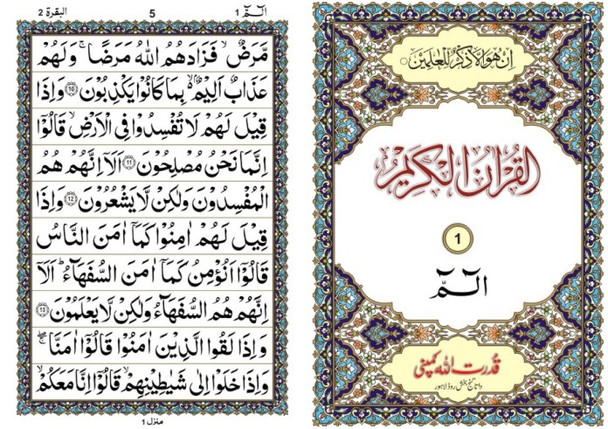 البقرة 2
5
الٓمّٓ 1
مَّرَضٌ ۙ فَزَادَهُمُ اللّٰهُ مَرَضًا ۚ وَلَهُمْ
عَذَابٌ اَلِيْمٌۢ ۙ بِمَا كَانُوْا يَكْذِبُوْنَ ⑩ وَاِذَا
قِيْلَ لَهُمْ لَا تُفْسِدُوْا فِى الْاَرْضِ ۙ قَالُوْٓا
اِنَّمَا نَحْنُ مُصْلِحُوْنَ ⑪ اَلَآ اِنَّهُمْ هُمُ
الْمُفْسِدُوْنَ وَلٰكِنْ لَّا يَشْعُرُوْنَ ⑫ وَاِذَا
قِيْلَ لَهُمْ اٰمِنُوْا كَمَآ اٰمَنَ النَّاسُ
قَالُوْٓا اَنُؤْمِنُ كَمَآ اٰمَنَ السُّفَهَآءُ ؕ اَلَآ
اِنَّهُمْ هُمُ السُّفَهَآءُ وَلٰكِنْ لَّا يَعْلَمُوْنَ ⑬
وَاِذَا لَقُوا الَّذِيْنَ اٰمَنُوْا قَالُوْٓا اٰمَنَّا ۖۚ
وَاِذَا خَلَوْا اِلٰى شَيٰطِيْنِهِمْ ۙ قَالُوْٓا اِنَّا مَعَكُمْ ۙ
منزل 1
اِنْ هُوَ اِلَّا ذِكْرٌ لِّلْعٰلَمِيْنَ
القُرآن الكَرِيم
1
الٓمّٓ
قدرت اللہ کمپنی
داتا گنج بخش روڈ لاہور